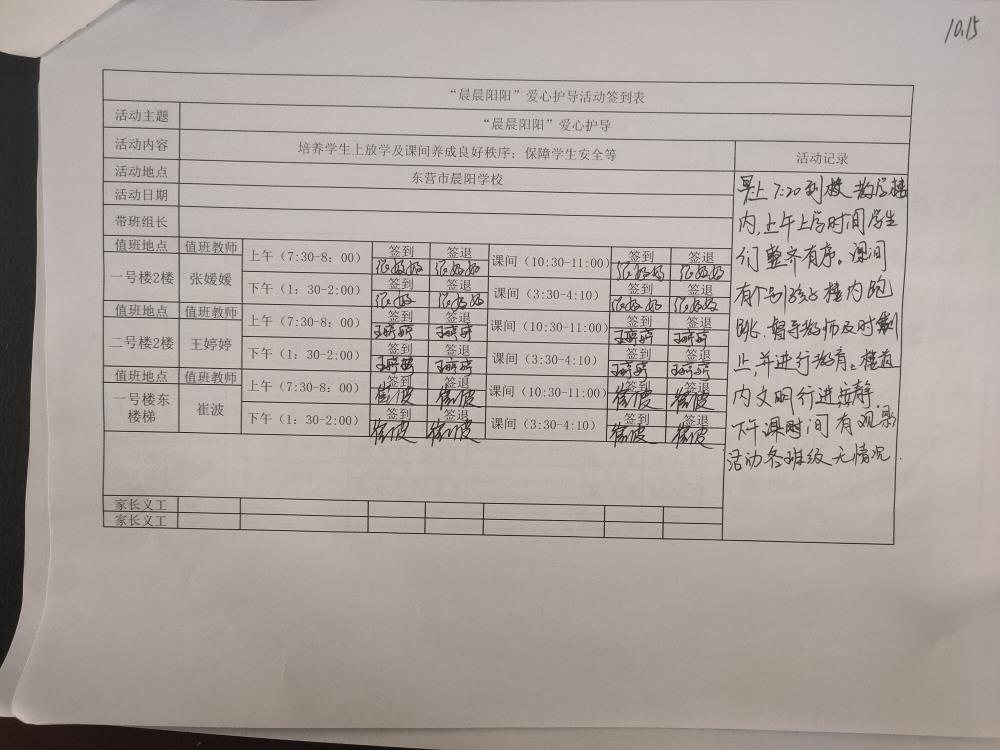 10.15
“晨晨阳阳”爱心护导活动签到表
活动主题 “晨晨阳阳”爱心护导
活动内容 培养学生上放学及课间养成良好秩序；保障学生安全等 活动记录
活动地点 东营市晨阳学校
活动日期
带班组长
值班地点 值班教师 上午（7:30-8：00） 签到 签退 课间（10:30-11:00） 签到 签退
张媛媛 张媛媛 张媛媛 张媛媛
一号楼2楼 张媛媛 下午（1：30-2:00） 签到 签退 课间（3:30-4:10） 签到 签退
张媛 张媛媛 张媛媛 张媛媛
值班地点 值班教师 上午（7:30-8：00） 签到 签退 课间（10:30-11:00） 签到 签退
王婷婷 王婷婷 王婷婷 王婷婷
二号楼2楼 王婷婷 下午（1：30-2:00） 签到 签退 课间（3:30-4:10） 签到 签退
王婷婷 王婷婷 王婷婷 王婷婷
值班地点 值班教师 上午（7:30-8：00） 签到 签退 课间（10:30-11:00） 签到 签退
崔波 崔波 崔波 崔波
一号楼东楼梯 崔波 下午（1：30-2:00） 签到 签退 课间（3:30-4:10） 签到 签退
崔波 崔波 崔波 崔波
家长义工
家长义工
早上7:20到校 教学楼
内,上午上学时间学生
们整齐有序。课间
有个别孩子楼内跑
跳.督导教师及时制
止,并进行教育。楼道
内文明行进安静
下午课时间有观影
活动各班级无情况.